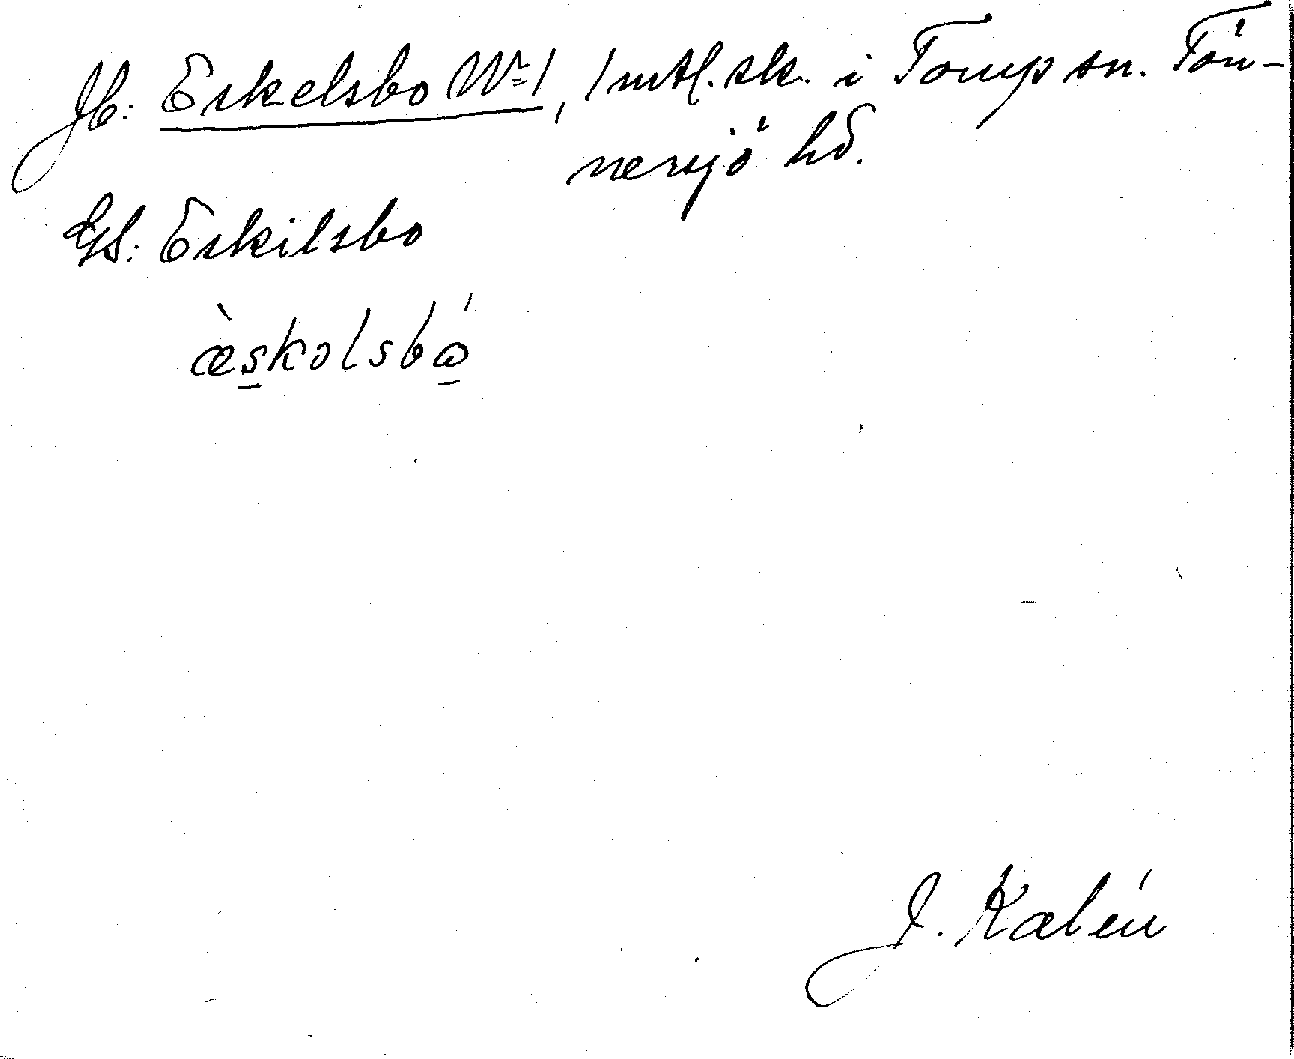 Jb: Eskelsbo Nº 1, 1 mtl. sk. i Torup sn. Tön-
nersjö hd.
GS: Eskilsbo
æ̀skolsbó̲
J. Kalén